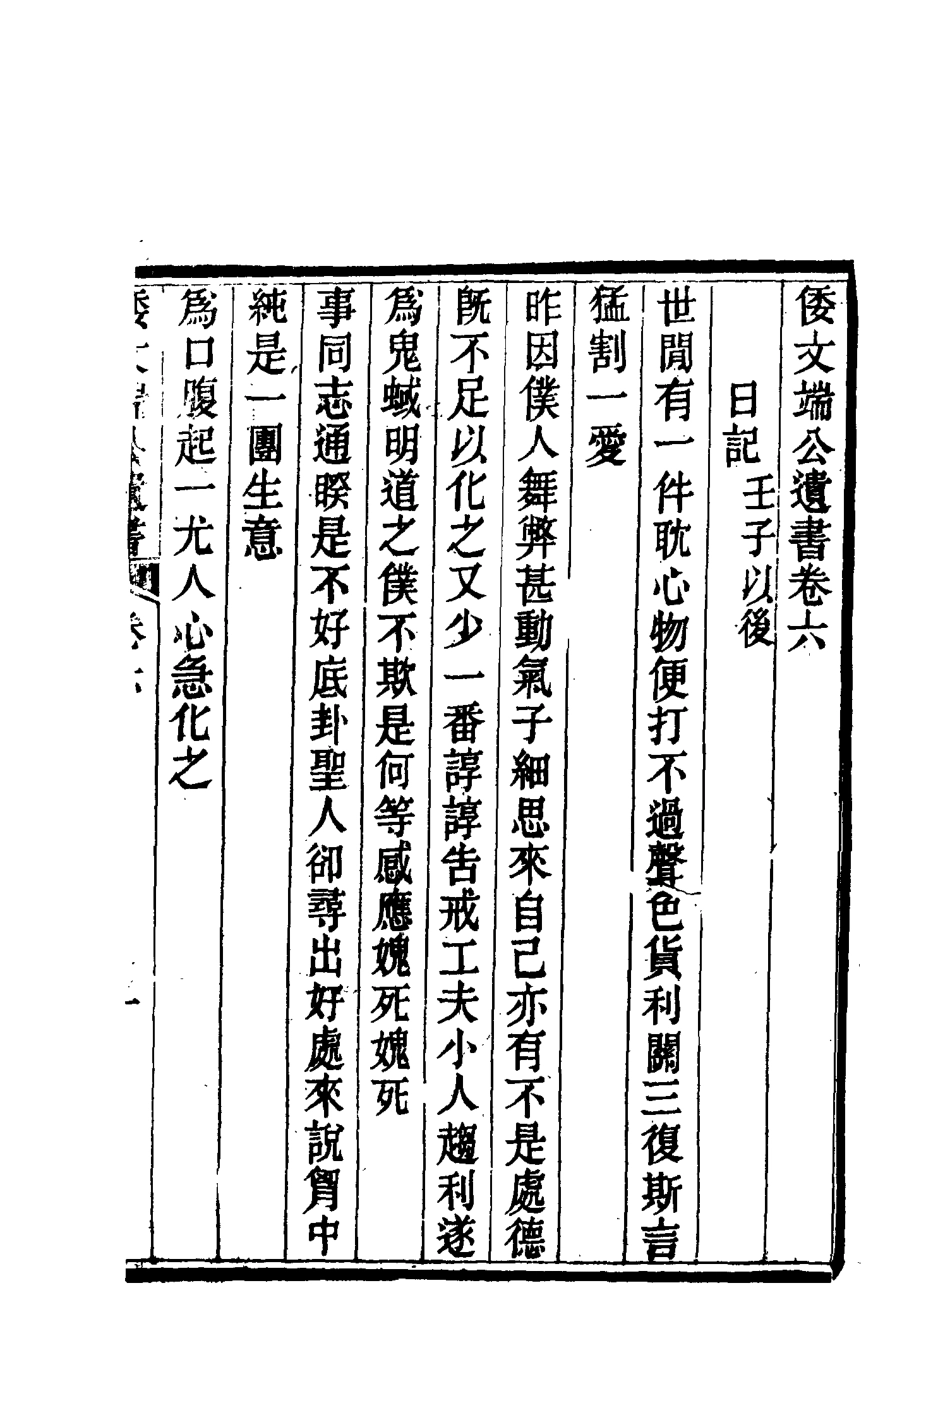 倭文端公遺書卷六
日記 壬子以後
世閒有一件耽心物便打不過聲色貨利關三復斯言
猛割一愛
昨因僕人舞弊甚動氣子細思來自己亦有不是處德
旣不足以化之又少一番諄諄告戒工夫小人趨利遂
爲鬼蜮明道之僕不欺是何等感應媿死媿死
事同志通睽是不好底卦聖人卻尋出好處來說胷中
純是一團生意
爲口腹起一尤人心急化之
倭文端公遺書 卷六 一